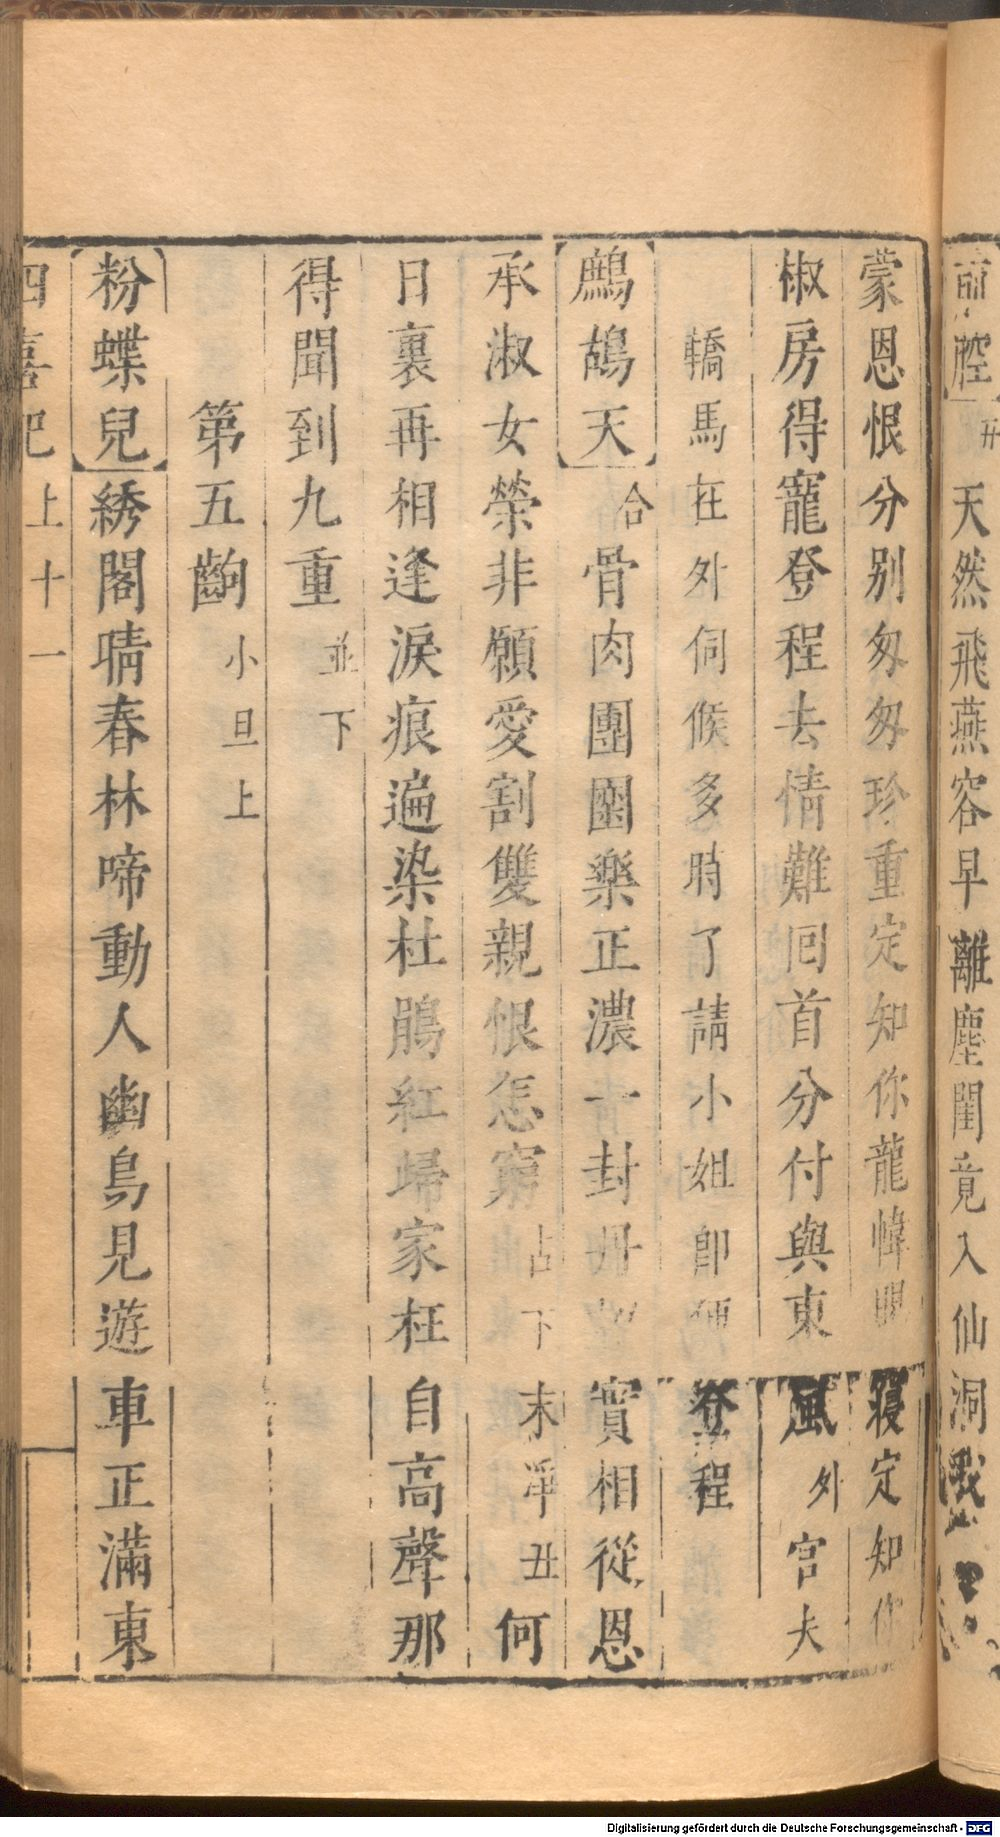 前腔 天然飛燕容早離塵閨竟入仙洞
蒙恩恨分别匆匆珍重定知你龍幃明寢定知你
椒房得寵登程去情難回首分付與東風 外 宫夫
轎馬在外伺候多時了請小姐即便登程
鷓鴣天 合 骨肉團圞樂正濃一封丹 實相從恩
承淑女榮非願愛割雙親恨怎窮 占下 末淨丑 何
日裏再相逢淚痕遍染杜鵑紅歸家枉自高聲那
得聞到九重 並下
第五齣 小旦上
粉蝶兒 綉閣晴春林啼動人幽鳥見遊車正滿東
四喜記 上 十一
Digitalisierung gefördert durch die Deutsche Forschungsgemeinschaft - DFG